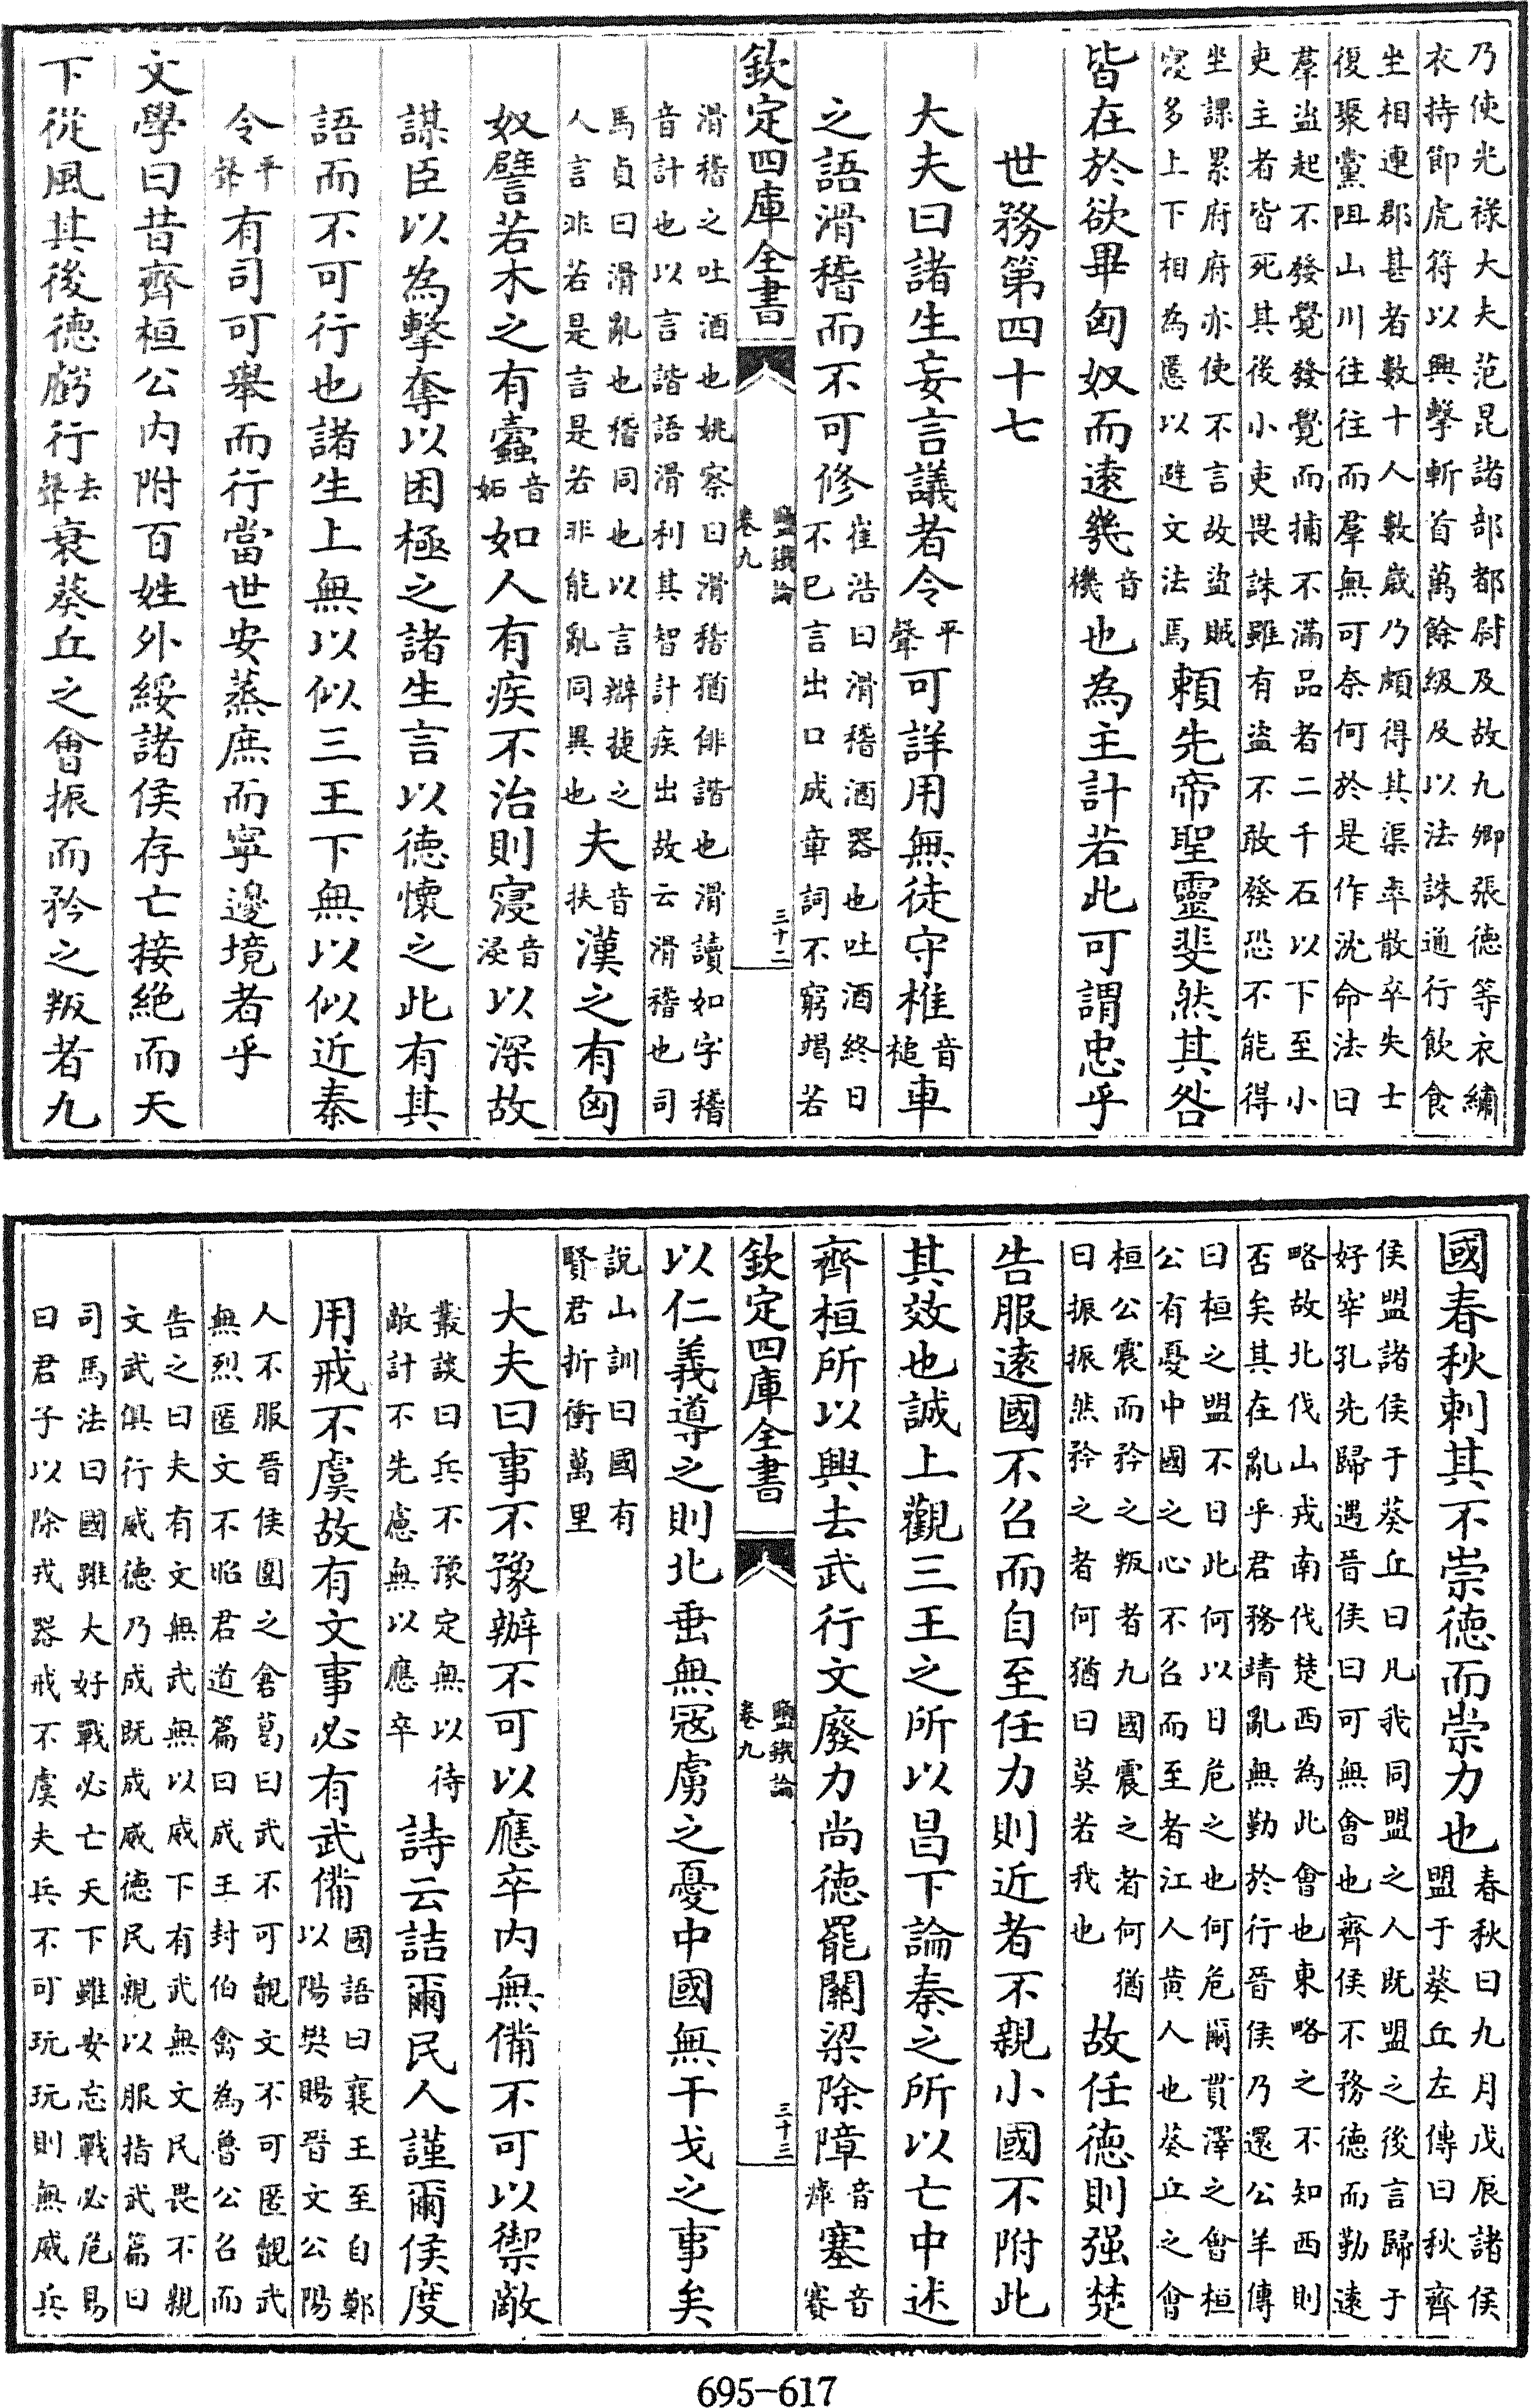 乃使光禄大夫范昆諸部都尉及故九卿張德等衣繡
衣持節虎符以興擊斬首萬餘級及以法誅通行飲食
坐相連郡甚者數十人數歲乃頗得其渠率散卒失士
復聚黨阻山川往往而羣無可奈何於是作沈命法曰
羣盜起不發覺發覺而捕不滿品者二千石以下至小
吏主者皆死其後小吏畏誅雖有盜不敢發恐不能得
坐課累府府亦使不言故盜賊
寖多上下相為慝以避文法焉賴先帝聖靈斐然其咎
皆在於欲畢匈奴而遠幾音機也為主計若此可謂忠乎
世務第四十七
大夫曰諸生妄言議者令平聲可詳用無徒守椎音槌車
之語滑稽而不可修崔浩曰滑稽酒器也吐酒終日
不已言出口成章詞不窮竭若
欽定四庫全書 鹽鐵論 卷九 三十二
滑稽之吐酒也姚察曰滑稽猶俳諧也滑讀如字稽
音計也以言諧語滑利其智計疾出故云滑稽也司
馬貞曰滑亂也稽同也以言辯捷之
人言非若是言是若非能亂同異也夫音扶漢之有匈
奴譬若木之有蠹音妬如人有疾不治則寖音浸以深故
謀臣以為擊奪以困極之諸生言以德懷之此有其
語而不可行也諸生上無以似三王下無以似近秦
令平聲有司可舉而行當世安蒸庶而寧邊境者乎
文學曰昔齊桓公内附百姓外綏諸侯存亡接絶而天
下從風其後德虧行去聲衰葵丘之會振而矜之叛者九
國春秋刺其不崇德而崇力也春秋曰九月戊辰諸侯
盟于葵丘左傳曰秋齊
侯盟諸侯于葵丘曰凡我同盟之人既盟之後言歸于
好宰孔先歸遇晉侯曰可無會也齊侯不務德而勤遠
略故北伐山戎南伐楚西為此會也東略之不知西則
否矣其在亂乎君務靖亂無勤於行晉侯乃還公羊傳
曰桓之盟不日此何以日危之也何危爾貫澤之會桓
公有憂中國之心不召而至者江人黄人也葵丘之會
桓公震而矜之叛者九國震之者何猶
曰振振然矜之者何猶曰莫若我也故任德則强楚
告服遠國不召而自至任力則近者不親小國不附此
其效也誠上觀三王之所以昌下論秦之所以亡中述
齊桓所以興去武行文廢力尚德罷關梁除障音瘴塞音賽
欽定四庫全書 鹽鐵論 卷九 三十三
以仁義導之則北垂無寇虜之憂中國無干戈之事矣
説山訓曰國有
賢君折衝萬里
大夫曰事不豫辦不可以應卒内無備不可以禦敵
叢談曰兵不豫定無以待
敵計不先慮無以應卒詩云詰爾民人謹爾侯度
用戒不虞故有文事必有武備國語曰襄王至自鄭
以陽樊賜晉文公陽
人不服晉侯圍之倉葛曰武不可覿文不可匿覿武
無烈匿文不昭君道篇曰成王封伯禽為魯公召而
告之曰夫有文無武無以威下有武無文民畏不親
文武俱行威德乃成既成威德民親以服指武篇曰
司馬法曰國雖大好戰必亡天下雖安忘戰必危易
曰君子以除戎器戒不虞夫兵不可玩玩則無威兵
695-617